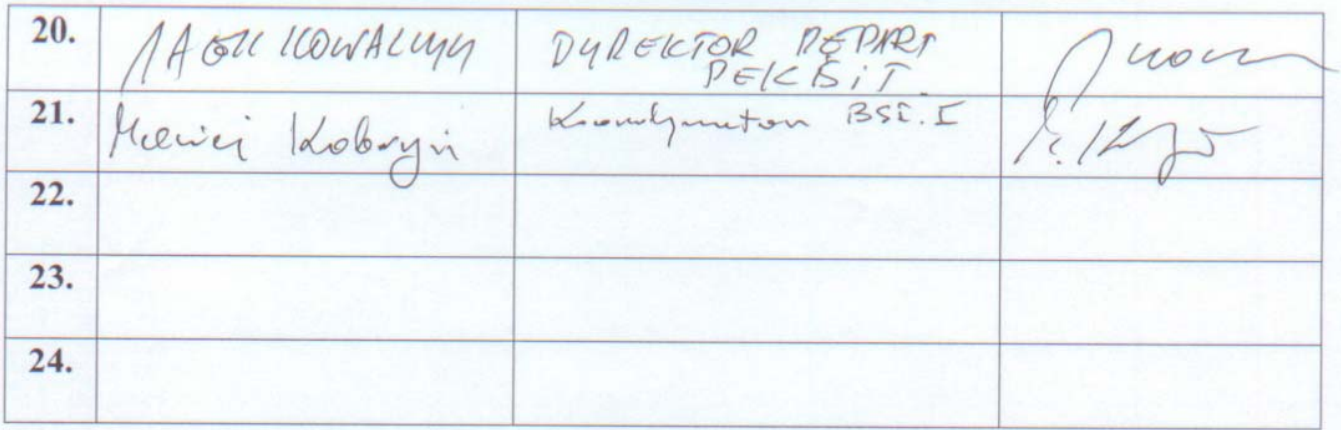 20. JACEK KOWALCZYK DYREKTOR DEPART
PEKBiT
21. Maciej Kobryń Koordynator BSI.I
22.
23.
24.